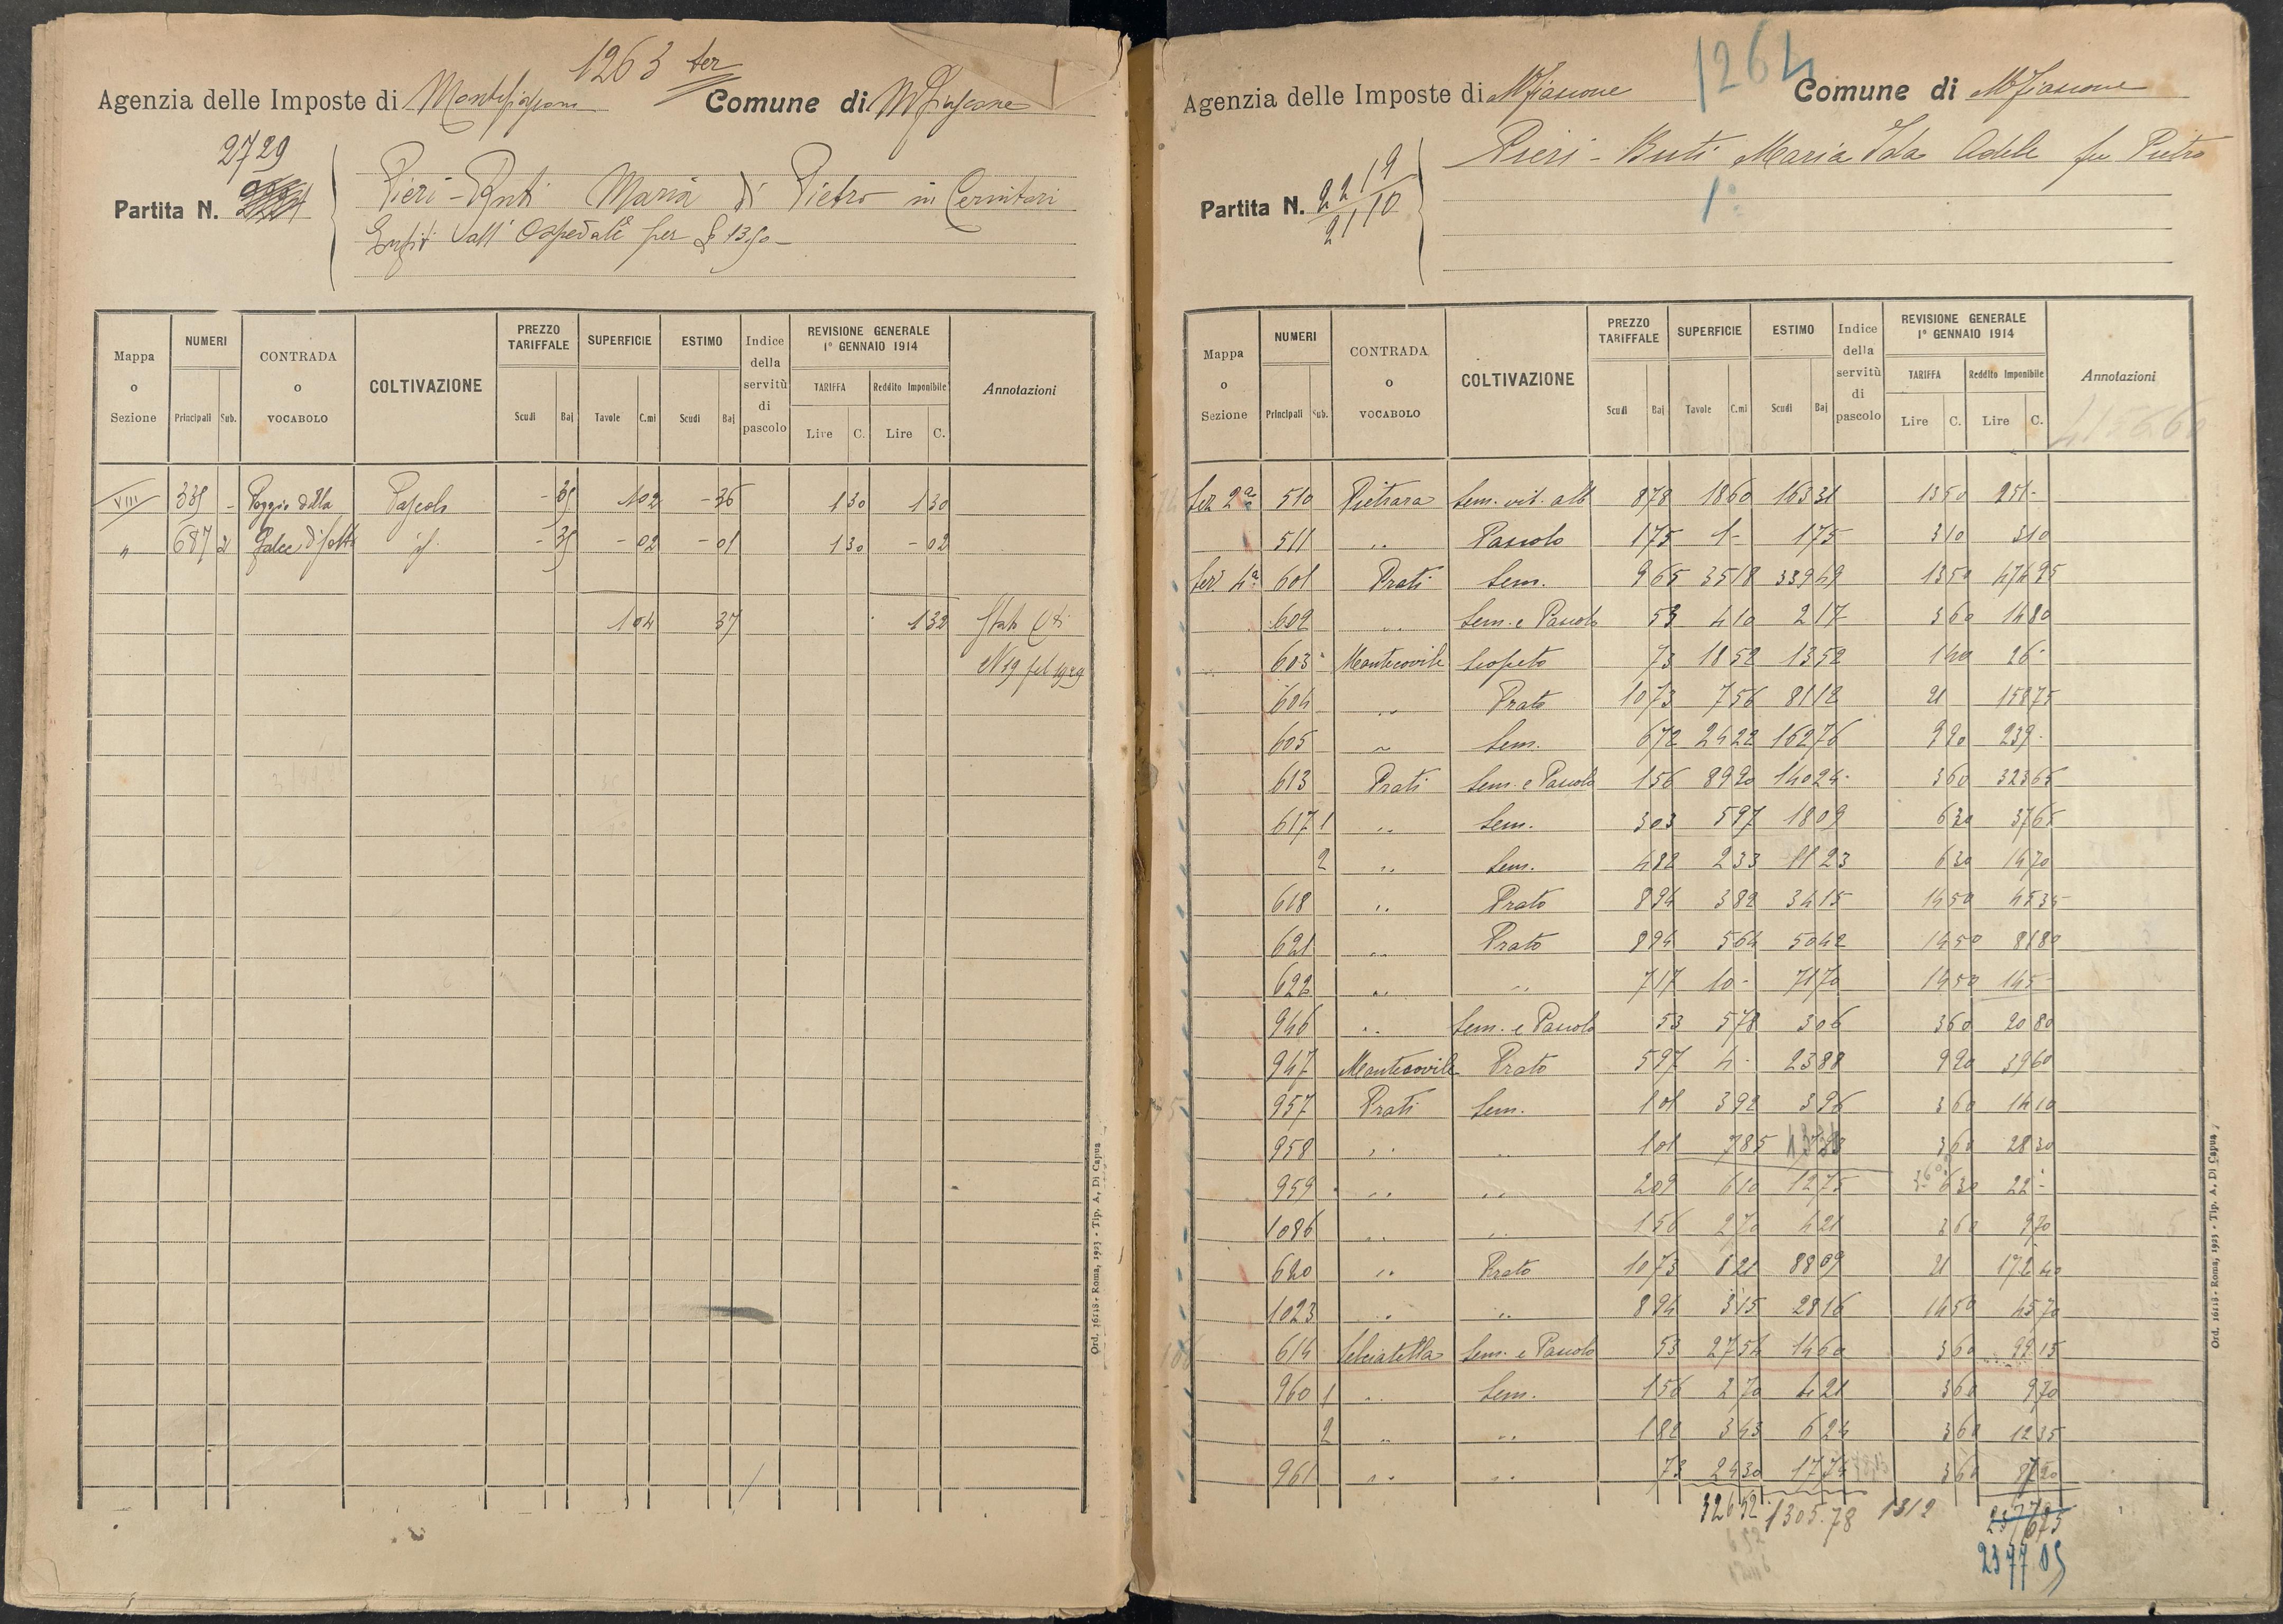 1263 ter
Agenzia delle Imposte di Montefiascone Comune di Mfiascone
2729
Partita N.
Pieri-Buti Maria di Pietro in Cernitori
Enfit. all' Ospedale per £ 13,50-
Mappa o Sezione
NUMERI
Principali Sub.
CONTRADA o VOCABOLO
COLTIVAZIONE
PREZZO TARIFFALE
Scudi Baj
SUPERFICIE
Tavole C.mi
ESTIMO
Scudi Baj
Indice della servitù di pascolo
REVISIONE GENERALE 1° GENNAIO 1914
TARIFFA Reddito Imponibile
Lire C. Lire C.
Annotazioni
VIII 335 - Poggio della Pascolo - 35 1 02 - 36 1 30 1 30
" 687 2 Galce di sotto id. - 35 - 02 - 01 1 30 - 02
1 04 37 1 32 Stato
N 19 pel 1929
Ord. 16118 - Roma, 1923 - Tip. A. Di Capua
1264
Agenzia delle Imposte di Mfiascone Comune di Mfiascone
Partita N. 2219
2110
Pieri-Buti Maria Ida Adele fu Pietro
1°
Mappa o Sezione
NUMERI
Principali Sub.
CONTRADA o VOCABOLO
COLTIVAZIONE
PREZZO TARIFFALE
Scudi Baj
SUPERFICIE
Tavole C.mi
ESTIMO
Scudi Baj
Indice della servitù di pascolo
REVISIONE GENERALE 1° GENNAIO 1914
TARIFFA Reddito Imponibile
Lire C. Lire C.
Annotazioni
4156.60
Sez 2ª 510 Pietrara Sem. vit. alb 8 78 18 60 163 31 13 50 251 -
511 " Pascolo 1 75 1 - 1 75 3 10 3 10
Sez. 4ª 601 Prati Sem. 9 65 35 18 339 49 13 50 474 95
602 " Sem. e Pascolo 53 4 10 2 17 3 60 14 80
603 Montecovile Scopeto 73 18 52 13 52 1 40 26 -
604 " Prato 10 73 7 56 81 12 21 158 75
605 " Sem. 6 72 24 22 162 76 9 90 239 -
613 Prati Sem. e Pascolo 1 56 89 90 140 24 3 60 323 65
617 1 " Sem. 3 03 5 97 18 09 6 30 37 65
2 " Sem. 4 82 2 33 11 23 6 30 14 70
618 " Prato 8 94 3 82 34 15 14 50 45 35
621 " Prato 8 94 5 64 50 42 14 50 81 80
622 " " 7 17 10 - 71 70 14 50 145 -
946 " Sem. e Pascolo 53 5 78 3 06 3 60 20 80
947 Montecovile Prato 5 97 4 - 23 88 9 90 39 60
957 Prati Sem. 1 01 3 92 3 96 3 60 14 10
958 " " 1 01 7 85 3 60 28 30
959 " " 2 09 6 10 12 75 6 30 22 -
1086 " " 1 56 2 70 4 21 3 60 9 70
620 " Prato 10 73 8 21 88 09 21 172 40
1023 " " 8 94 3 15 28 16 14 50 45 70
614 Selciatella Sem. e Pascolo 53 27 54 14 60 3 60 99 15
960 1 " Sem. 1 56 2 70 4 21 3 60 9 70
2 " " 1 82 3 43 6 24 3 60 12 35
961 " " 73 24 30 17 74 3 60 87 20
326 52 1305.78 1312
2377 05
Ord. 16118 - Roma, 1923 - Tip. A. Di Capua